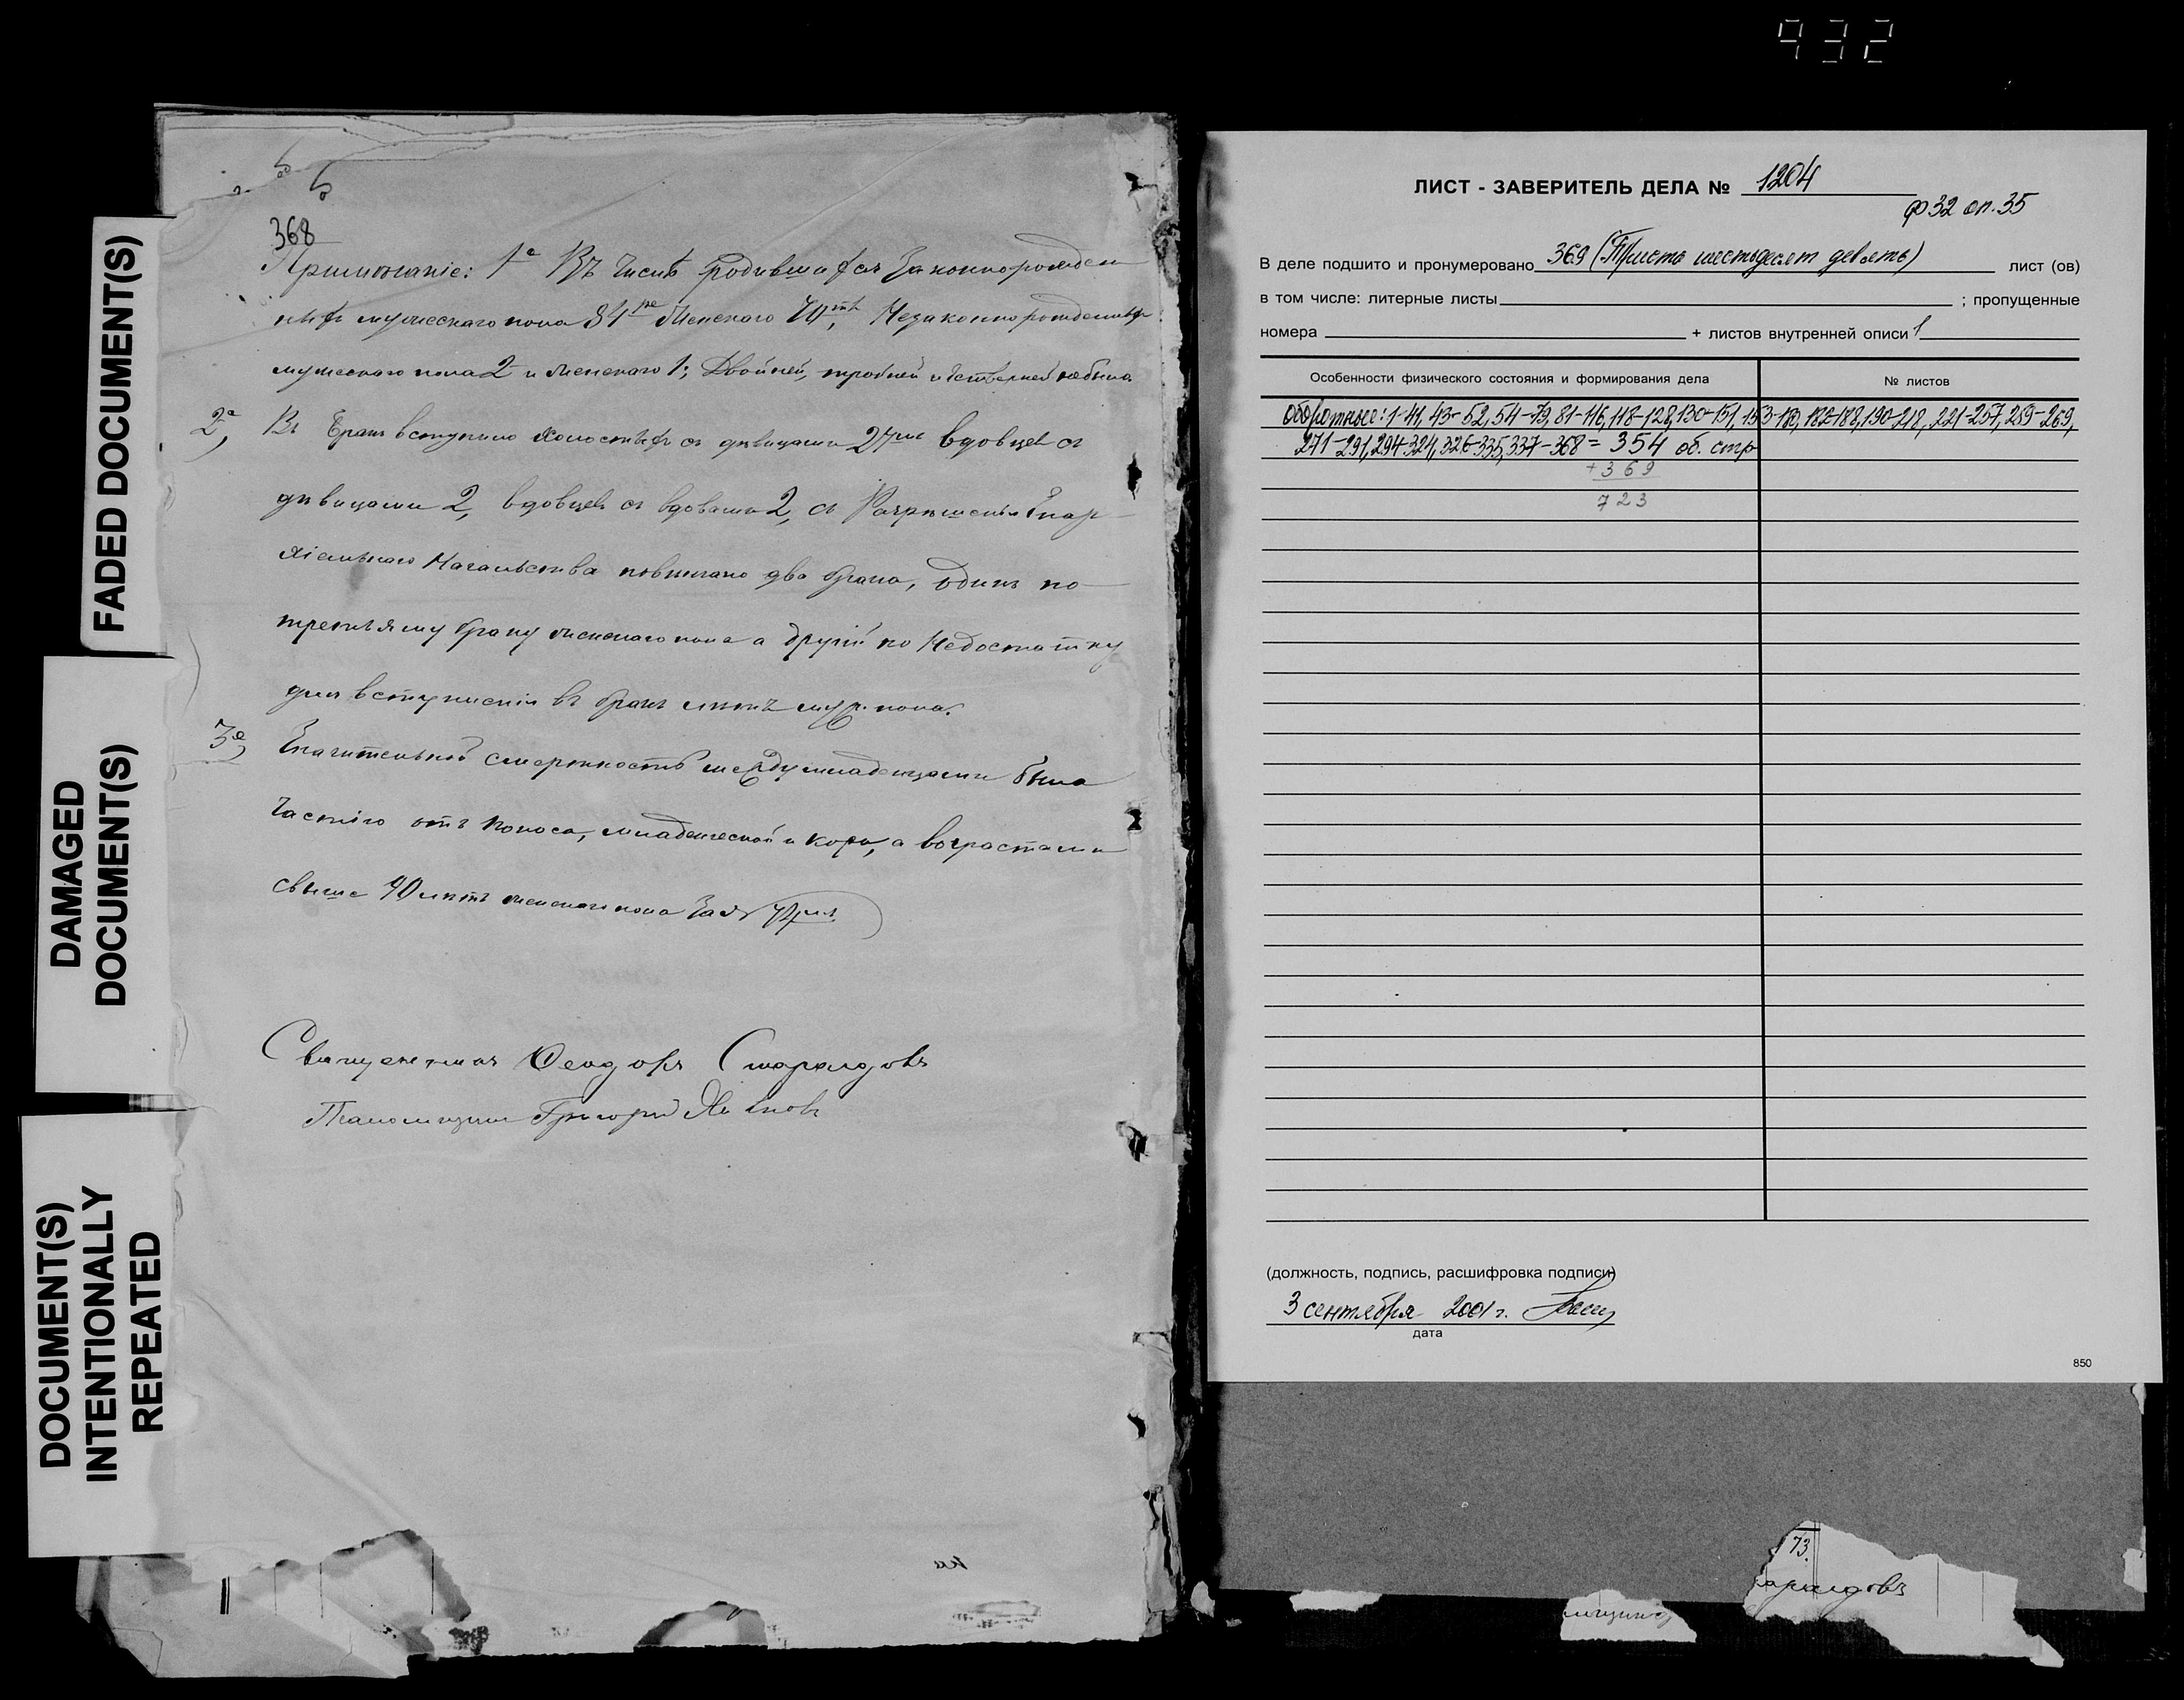 432
FADED DOCUMENT(S)
DAMAGED
DOCUMENT(S)
DOCUMENT(S)
INTENTIONALLY
REPEATED
368
Примѣчаніе: 1е Въ числѣ родившихся законнорожден
ныхъ мужескаго пола 84ре женскаго незаконнорожденныхъ
мужескаго пола 2 и женскаго 1; Двойней, тройней и четверней не было.
2е, Въ бракъ вступило холостыхъ съ дѣвицами 27мь вдовцевъ съ
дѣвицами 2, вдовцевъ съ вдовами 2, съ Разрѣшенія Епар
хіальнаго Начальства повѣнчано два брака, одинъ по
третьяму браку женскаго пола а другій по Недостатку
для вступленія въ бракъ лѣтъ муж. пола.
3е, Значительной смертность между младенцами была
частію отъ поноса, младенческой и кори, а возрастами
свыше 90 лѣтъ женскаго пола
Священникъ Феодоръ Старалдовъ
Псаломщикъ Григорій
ЛИСТ - ЗАВЕРИТЕЛЬ ДЕЛА № 1204
ф 32 оп. 35
В деле подшито и пронумеровано 369 (Триста шестьдесят девять) лист (ов)
в том числе: литерные листы ; пропущенные
номера + листов внутренней описи 1
Особенности физического состояния и формирования дела № листов
оборотные: 1-41, 43-52, 54-79, 81-116, 118-128, 130-151, 153-180, 182-188, 190-218, 221-257, 259-269,
271-291, 294-324, 326-335, 337-368 = 354 об. стр
+369
723
(должность, подпись, расшифровка подписи)
3 сентября 2001 г.
дата
850
73.